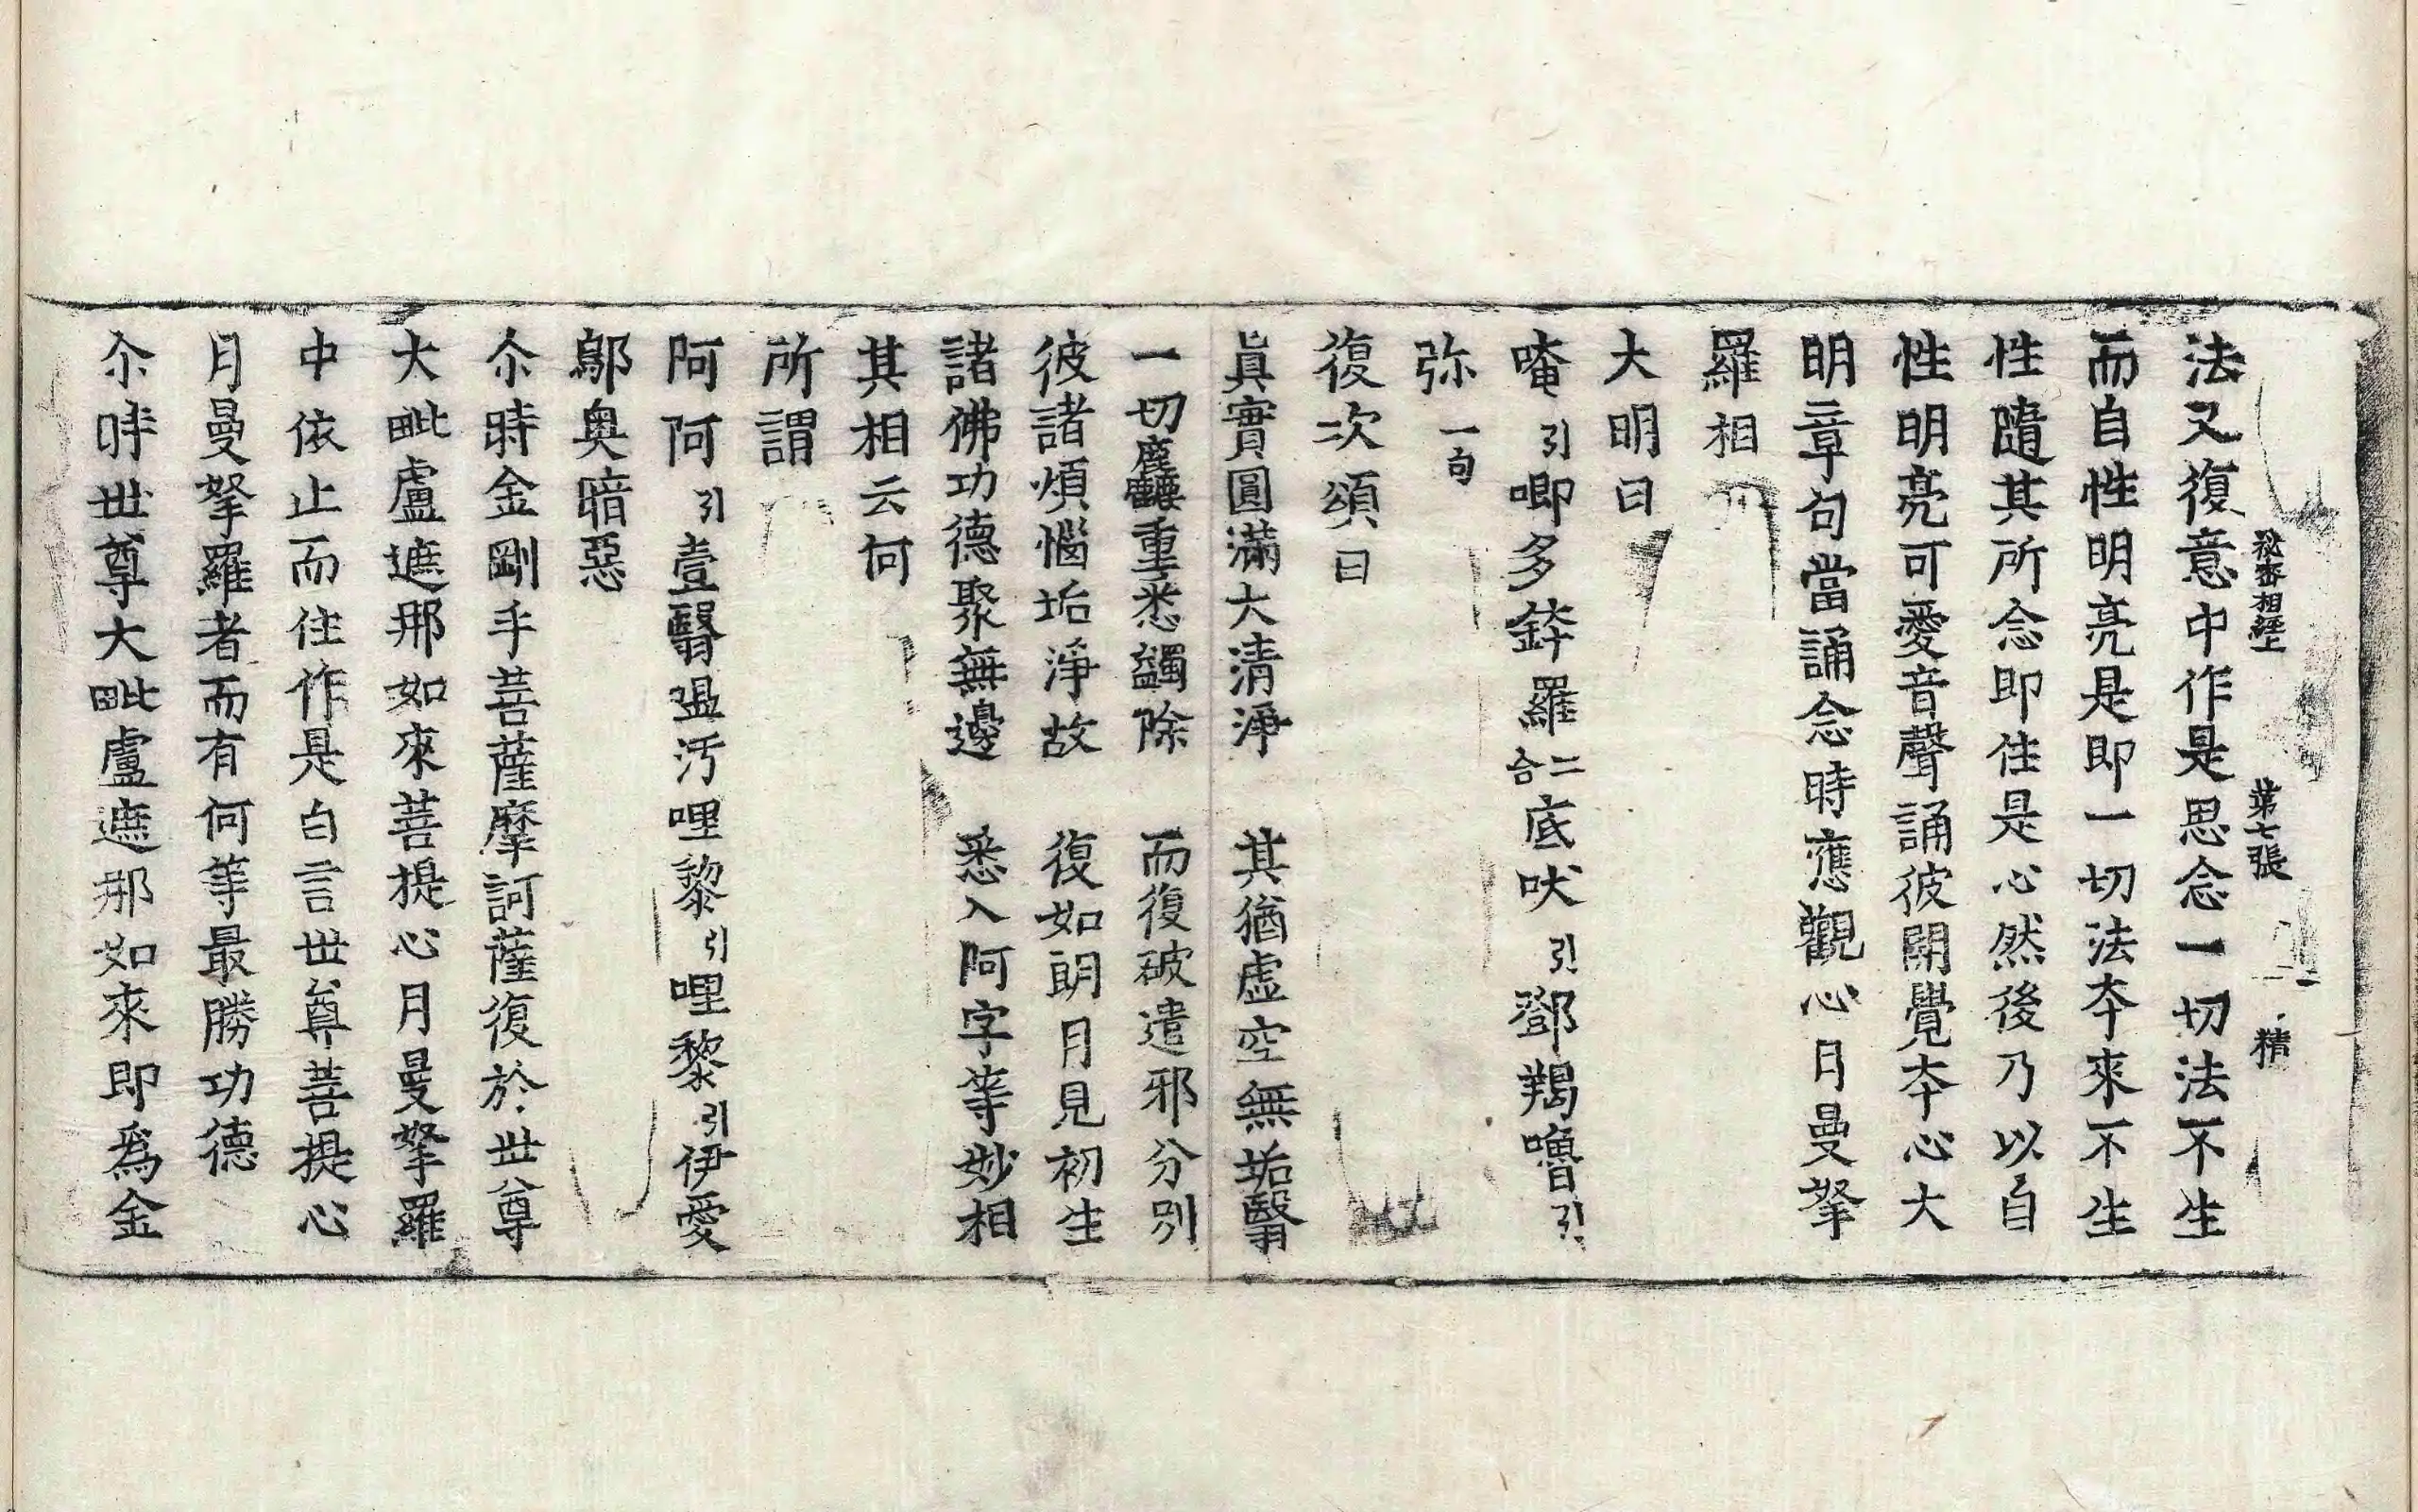 秘密相經上　第七張　精
法又復意中作是思念一切法不生
而自性明亮是即一切法夲來不生
性隨其所念即住是心然後乃以自
性明亮可愛音聲誦彼開覺夲心大
明章句當誦念時應觀心月曼拏
羅相
大明曰
唵引唧多鉾羅二合底吠引鄧羯嚕引
弥一句
復次頌曰
眞實圓滿大清淨　其猶虛空無垢翳
一切麁礙重悉蠲除　而復破遣邪分別
彼諸煩惱垢淨故　復如朗月見初生
諸佛功德聚無邊　悉入阿字等妙相
其相云何
所謂
阿阿引壹翳塭汚哩黎引哩黎引伊愛
鄔奥暗惡
尒時金剛手菩薩摩訶薩復於世尊
大毗盧遮那如來菩提心月曼拏羅
中依止而住作是白言世尊菩提心
月曼拏羅者而有何等最勝功德
尒時世尊大毗盧遮那如來即爲金